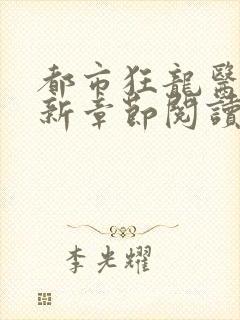 都市狂龍醫
新章節閱讀
李光耀